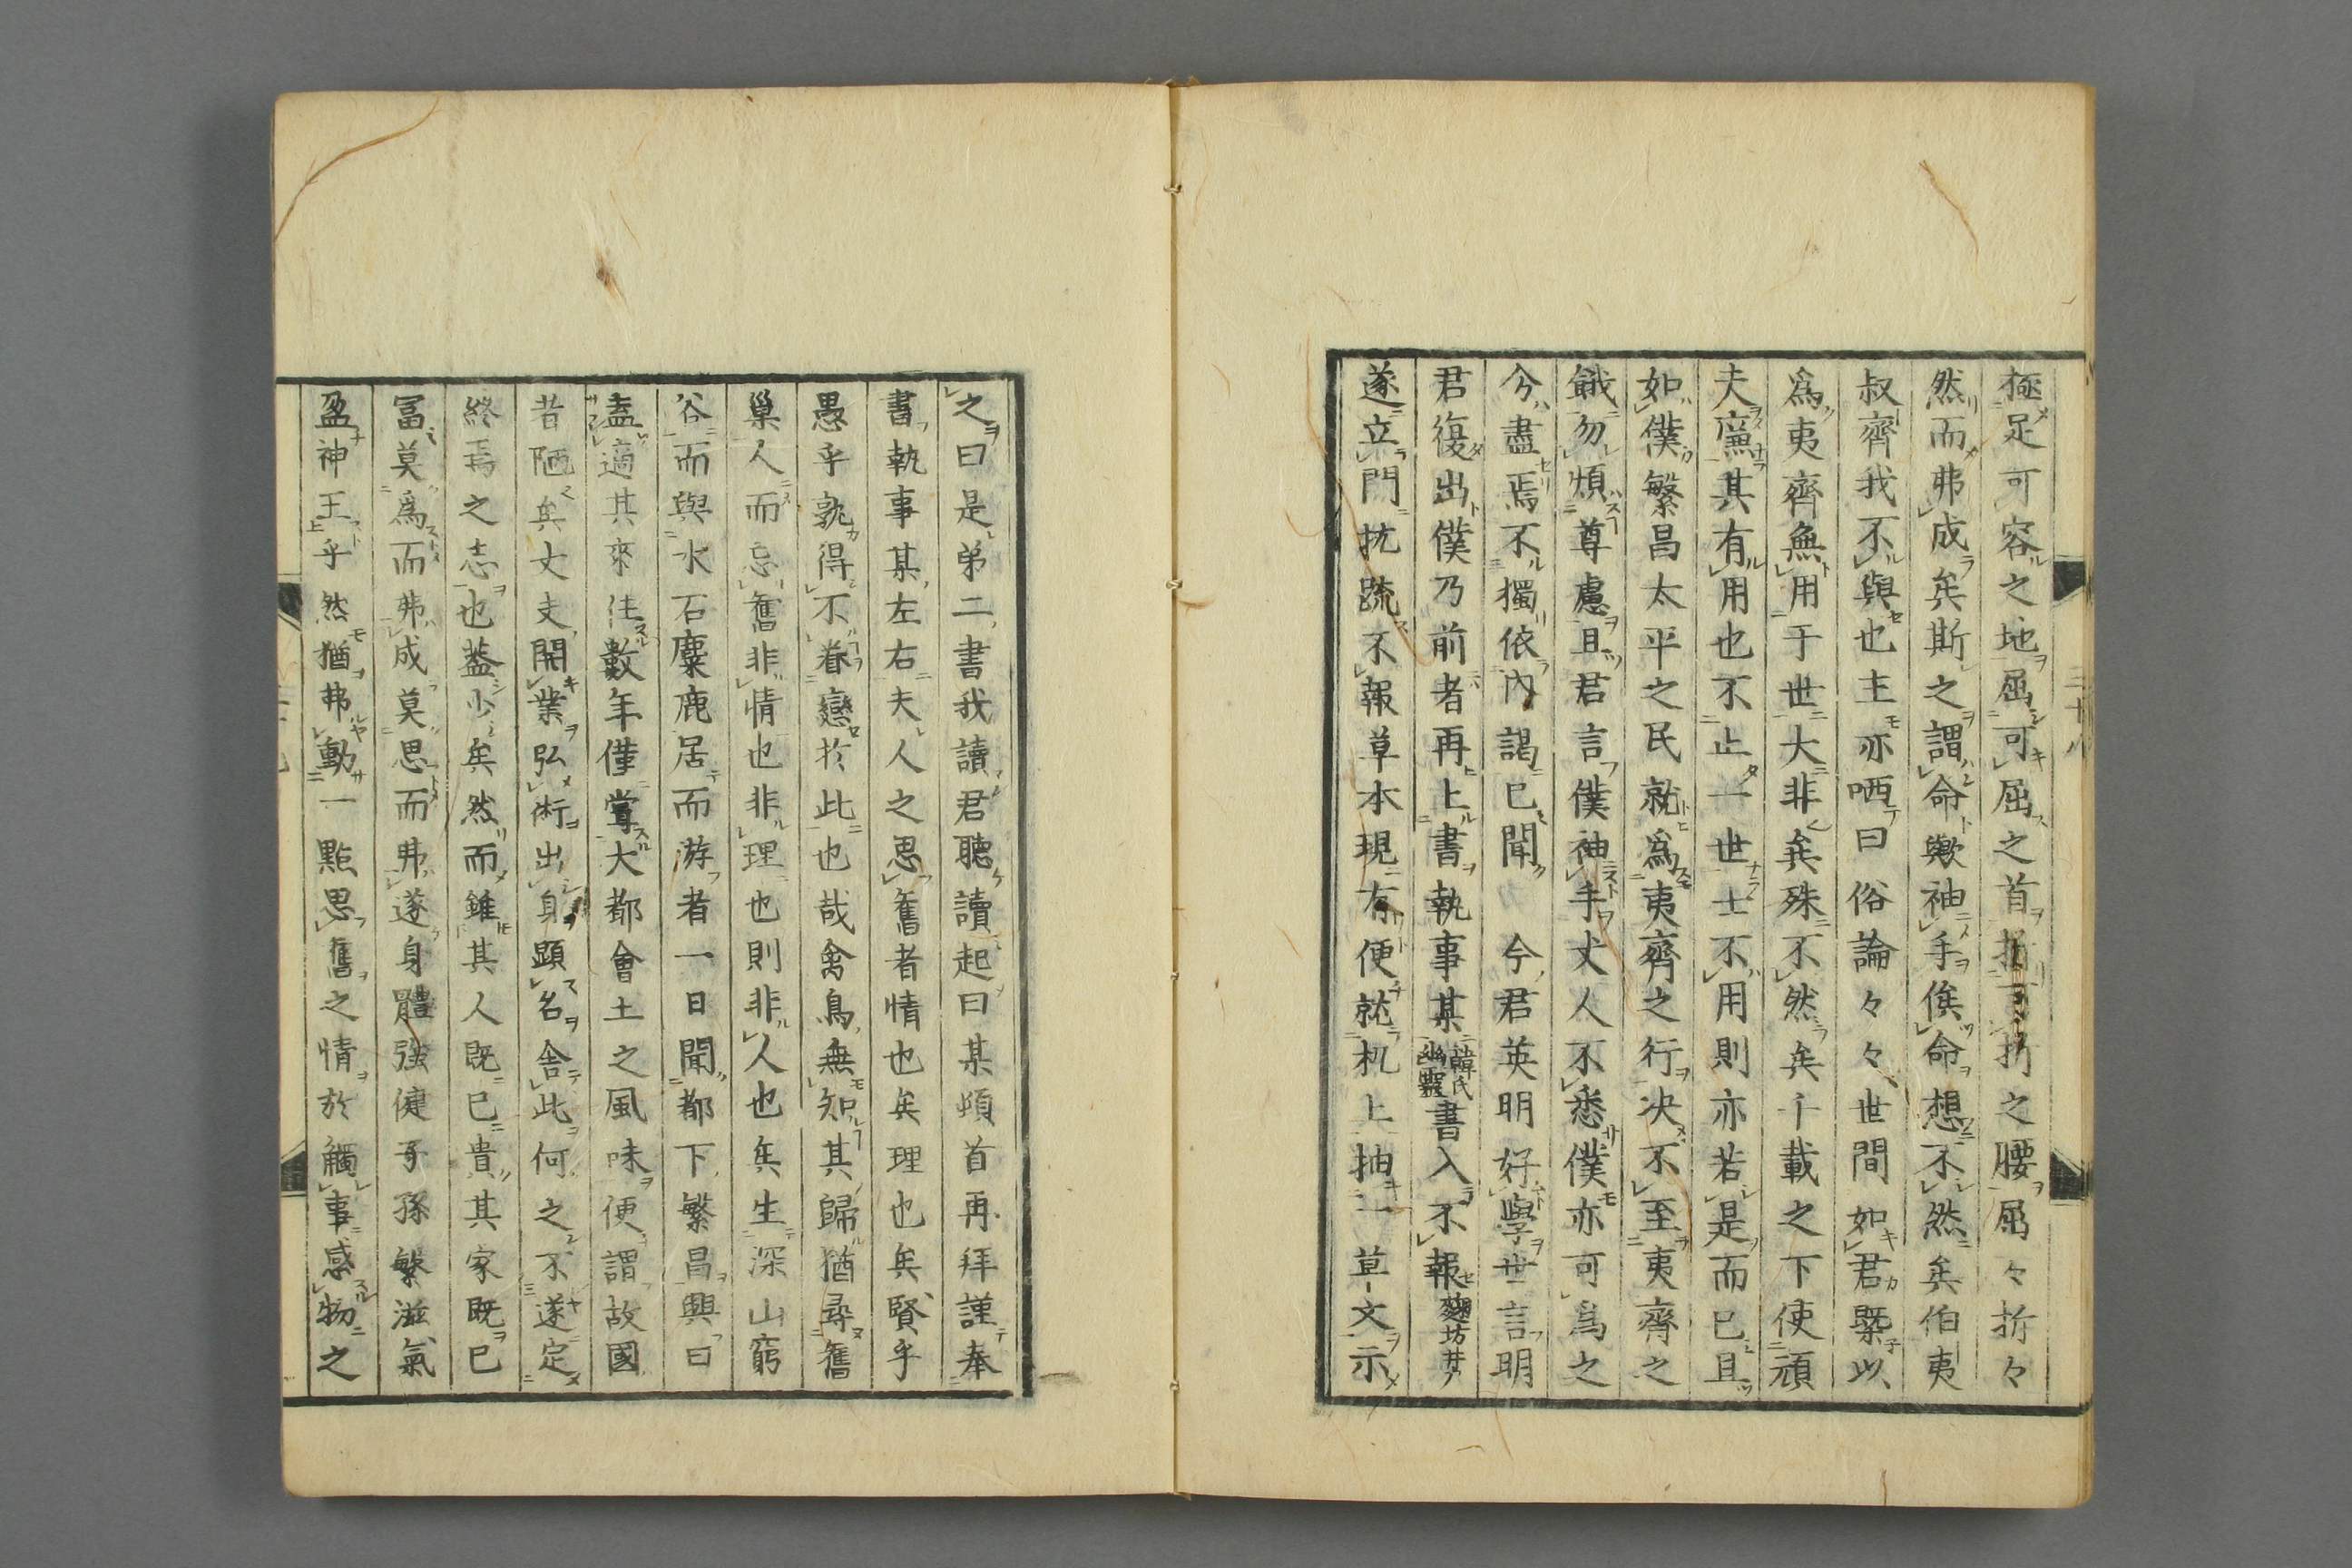 極足可容之地屈可屈之首折可折之腰屈々折々
然而弗成矣斯之謂命歟袖手俟命想不然矣伯夷
叔齊我不與也主亦哂曰俗論々々世間如君槩以
爲夷齊無用于世大非矣殊不然矣千載之下使頑
夫廉其有用也不止一世士不用則亦若是而已且
如僕繁昌太平之民就爲夷齊之行决不至夷齊之
餓勿煩尊慮且君言僕袖手丈人不悉僕亦可爲之
兮盡焉不獨依內謁已聞 今君英明好學世言明
君復出僕乃前者再上書執事某韓氏幽靈書入不報麹坊井戶
遂立門抗疏不報草本現有便就机上抽一草文示
之曰是弟二書我讀君聽讀起曰某頓首再拜謹奉
書執事某左右夫人之思舊者情也矣理也矣賢乎
愚乎孰得不眷戀於此也哉禽鳥無知其歸猶尋舊
巢人而忘舊非情也非理也則非人也矣生深山窮
谷而與水石麋鹿居而游者一日聞都下繁昌興曰
盍適其來住數年僅嘗大都會土之風味便謂故國
昔陋矣丈夫開業弘術出身顯名舍此何之不遂定
終焉之志也葢少矣然而雖其人既已貴其家既已
冨莫爲而弗成莫思而弗遂身體强健子孫繁滋氣
盈神王乎然猶弗動一點思舊之情於觸事感物之